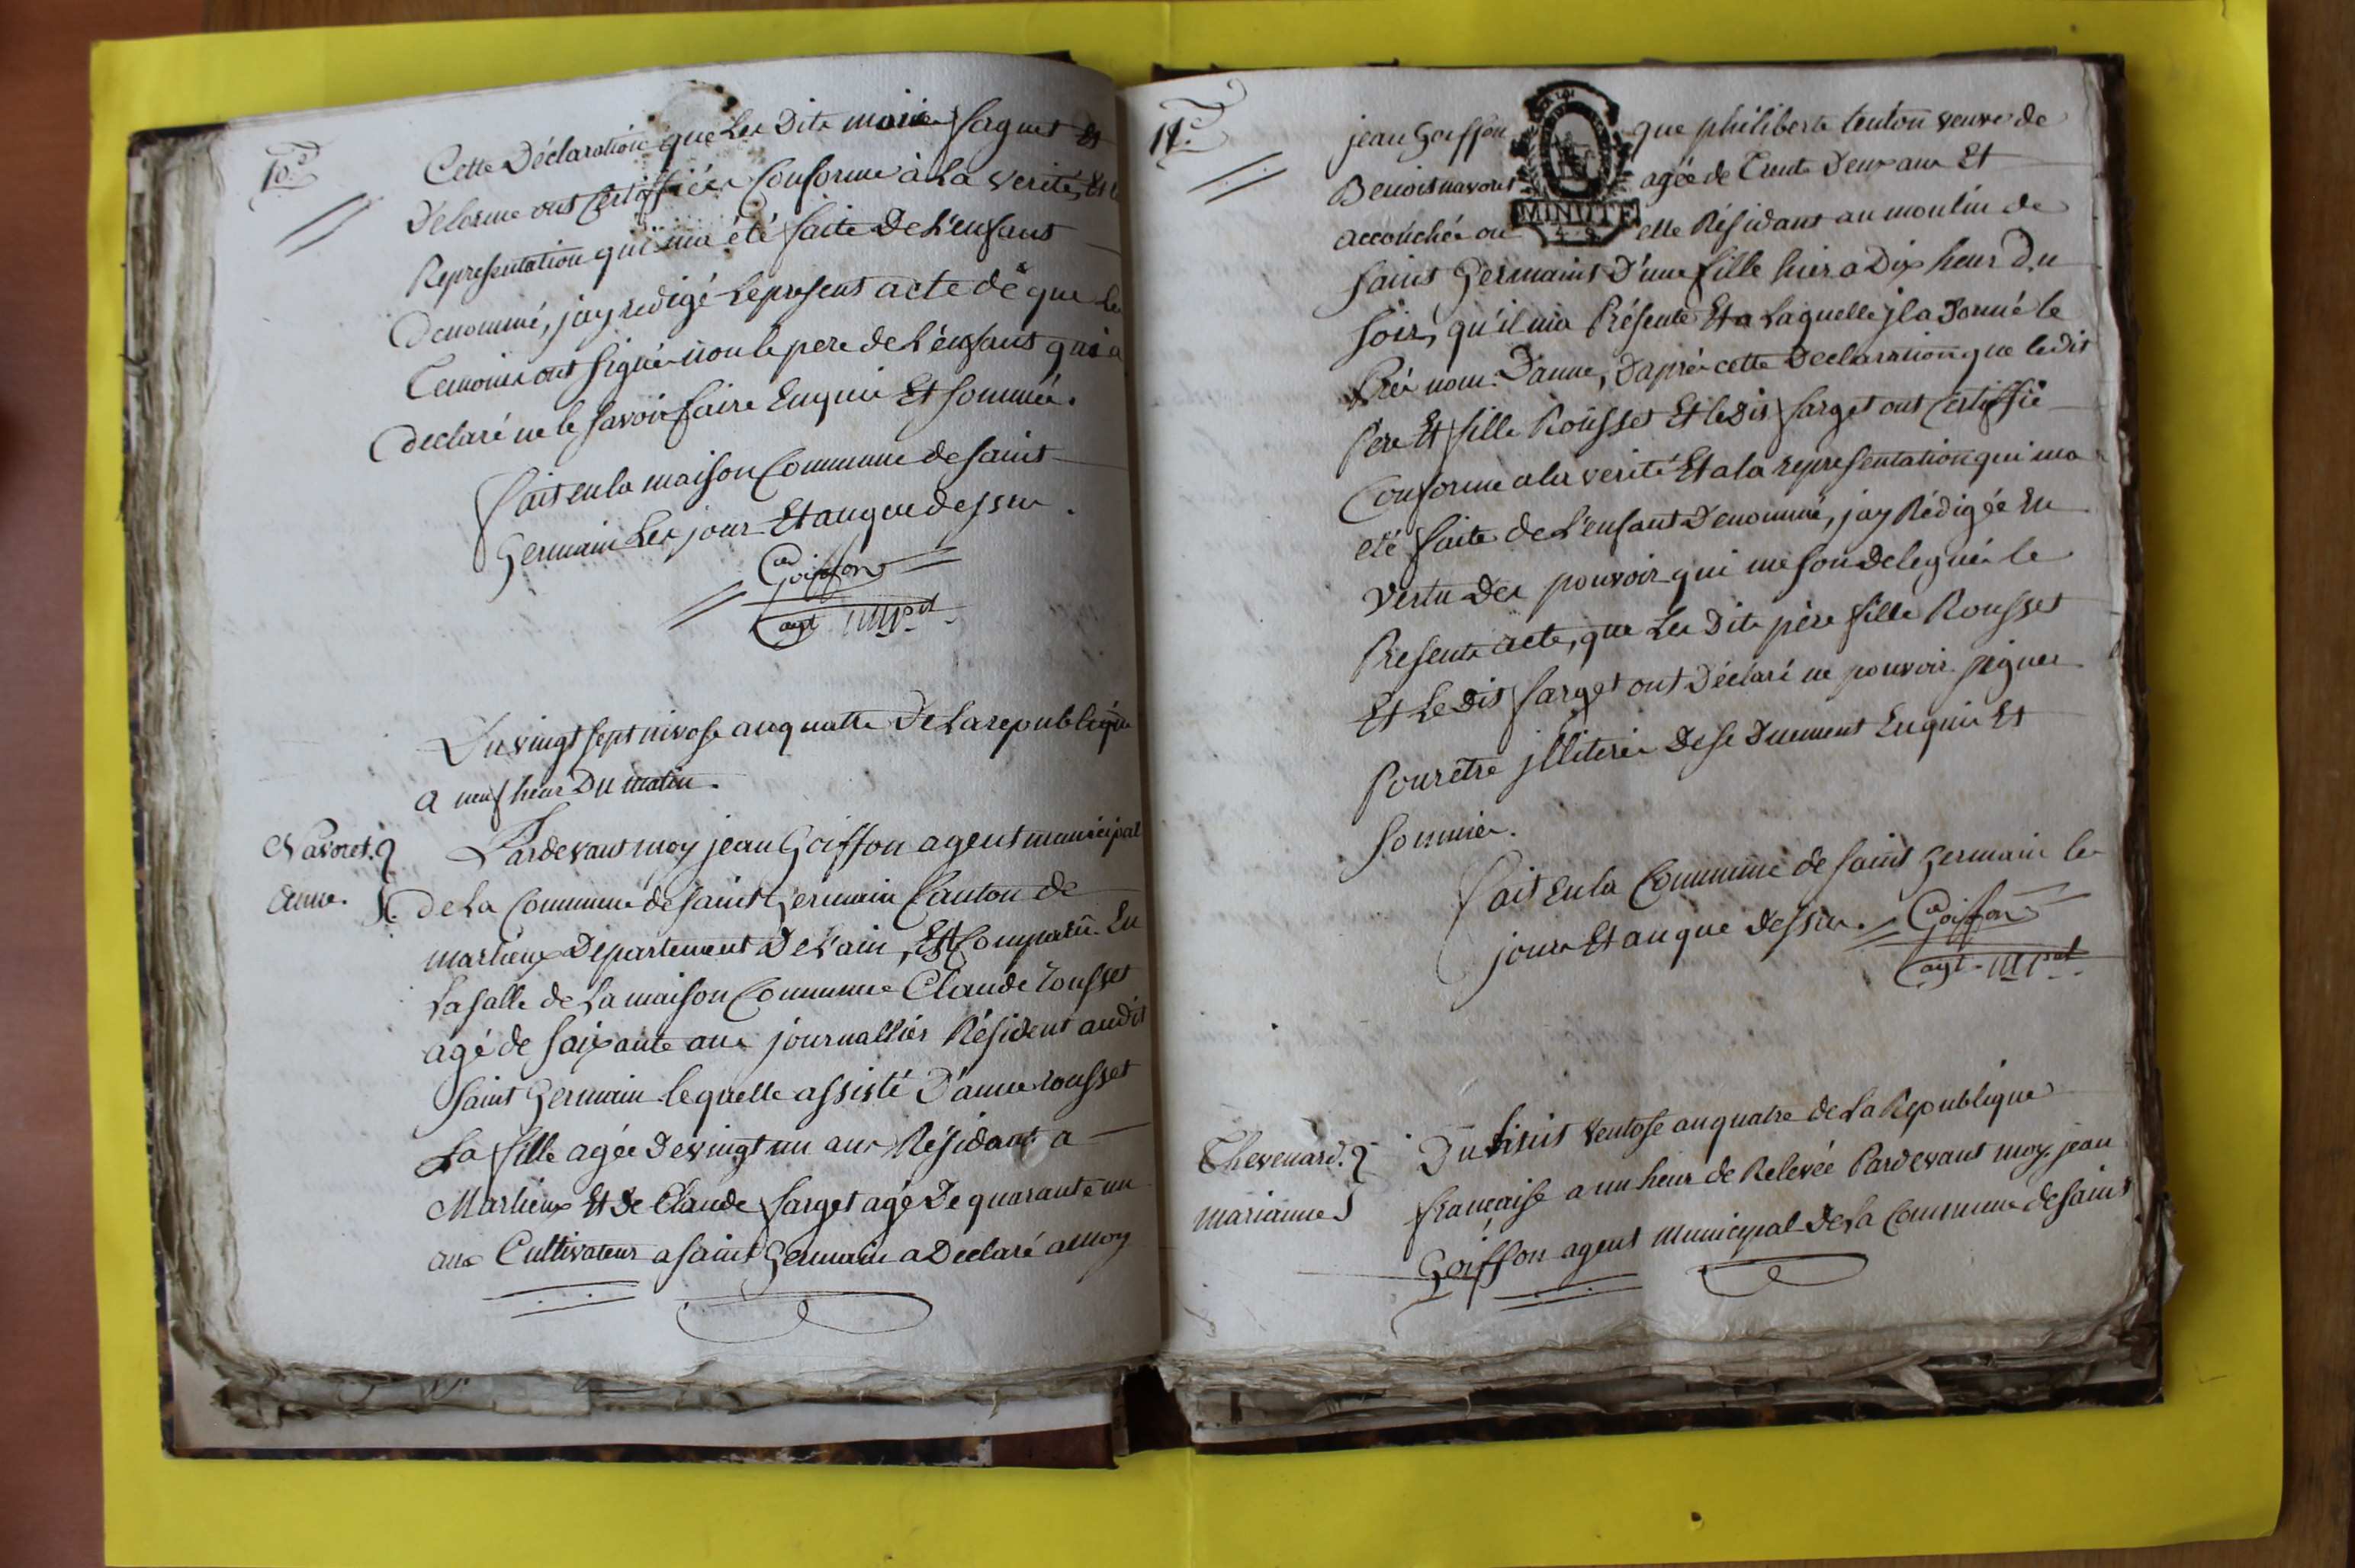 10.e
Cette Déclaration que Les Dits marie farget Et
Delorme ont Certiffiée Conforme à La verité, Et la
Representation qui ma été faite De L'enfant
Denommé, jay redigé Le present acte de que Les
Temoins ont signé non le pere de L'énfant qui a
declaré ne le savoir faire Enquis Et sommé.
fait en la maison Commune de saint
Germain Les jour Et an que dessus.
Goiffon
agt. mpal
Du vingt sept nivose an quatre De La republique
a neuf heur Du matin.
Navoret.
anne.
Pardevant moy jean Goiffon agent municipal
de La Commune de saint Germain Canton de
marlieux Departement De L'ain, Est Comparu En
La salle de La maison Commune Claude rousset
agé de soixante ans journallier Résident audit
saint Germain lequelle assisté D'anne rousset
La fille agée De vingt un ans Résidant a
Marlieux Et de Claude farget agé De quarante un
ans Cultivateur a saint Germain a Declaré a moy
11.e
jean Goiffon que philiberte tenton veuve de
Benoit navoret agée de Trente Deux ans Et
accouchée ou elle Résidant au moulin de
saint Germaint D'une fille hier a Dix heur Du
soir, qu'il ma Présenté Et a Laquelle jl a Donné le
Pré nom D'anne, D'aprés cette Declaration que ledit
Pere Et fille Rousset Et ledit farget ont Certiffié
Conforme a la verité Et a la representation qui ma
eté faite de L'enfant Denommé, jay Rédigée En
vertu Des pouvoir qui me son Delegués le
Present acte, que Les Dits père fille Rousset
Et Le Dit farget ont Déclaré ne pouvoir signer
Pour être jlliterés De ce Duement Enquis Et
sommés.
fait En la Commune de saint Germain les
jours Et an que Dessus. Goiffon
agt. mpal
Thevenard.
marianne
Du huit ventose an quatre de La Republique
francaise a un heur de Relevée Pardevant moy jean
Goiffon agent municipal De La Commune de saint
MINUTE